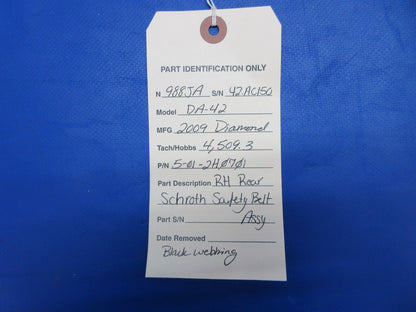 PART IDENTIFICATION ONLY
N 988JA S/N 42.AC150
Model DA-42
MFG 2009 Diamond
Tach/Hobbs 4,509.3
P/N 5-01-2H0701
Part Description RH Rear
Schroth Safety Belt
Part S/N Assy
Date Removed
Black webbing